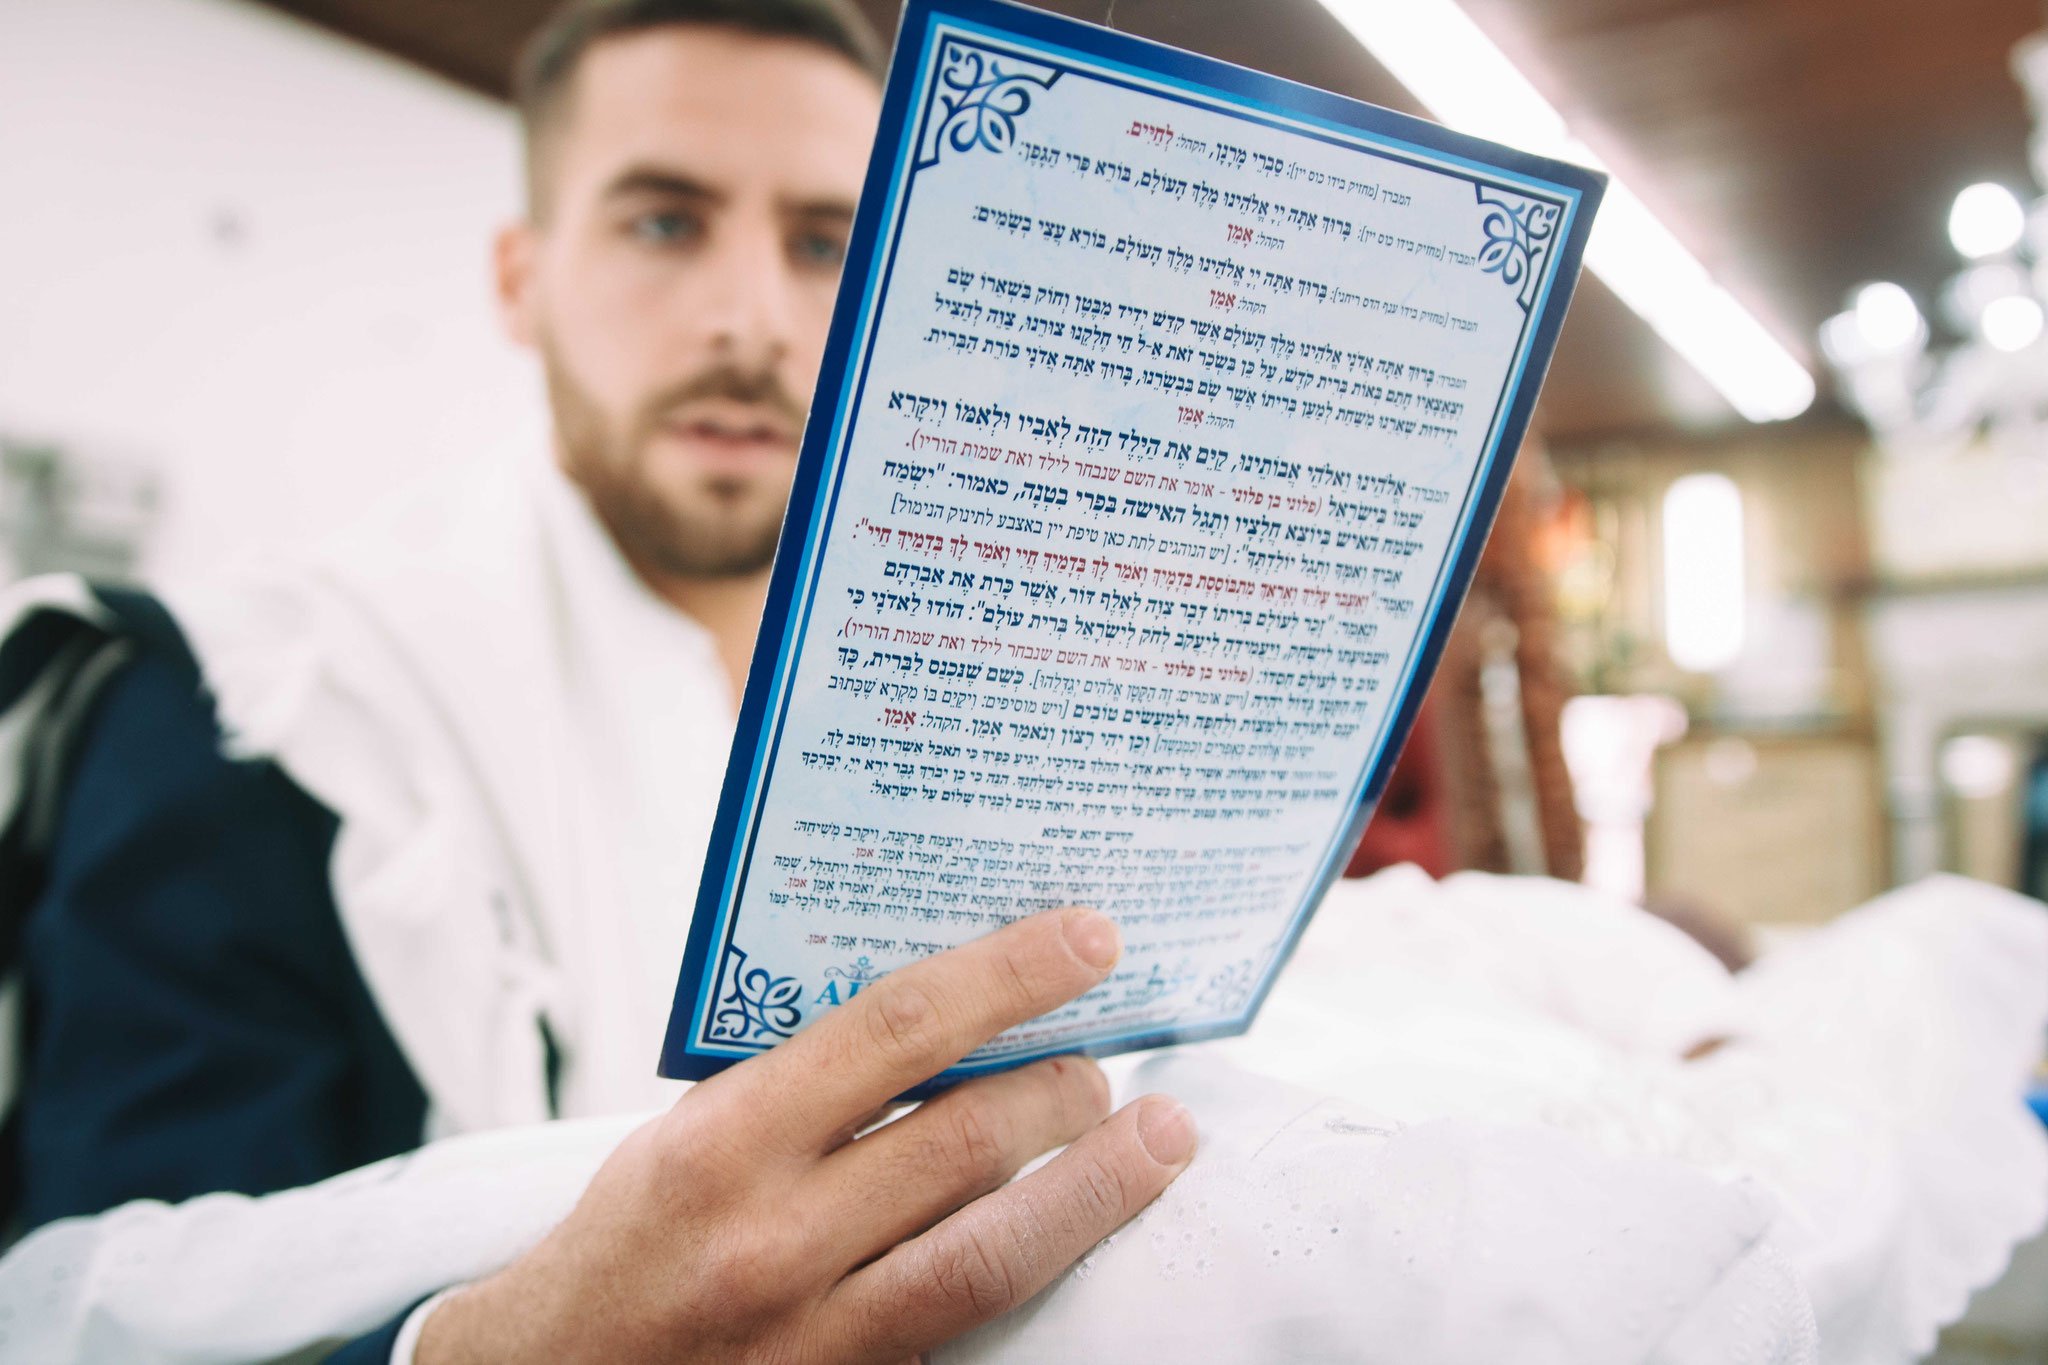 המברך [מחזיק בידו כוס יין]: סַבְרֵי מָרָנָן, הקהל: לְחַיִּים.
המברך [מחזיק בידו כוס יין]: בָּרוּךְ אַתָּה יְיָ אֱלֹהֵינוּ מֶלֶךְ הָעוֹלָם, בּוֹרֵא פְּרִי הַגָּפֶן:
הקהל: אָמֵן
המברך [מחזיק בידו ענף הדס ריחני]: בָּרוּךְ אַתָּה יְיָ אֱלֹהֵינוּ מֶלֶךְ הָעוֹלָם, בּוֹרֵא עֲצֵי בְשָׂמִים:
הקהל: אָמֵן
המברך: בָּרוּךְ אַתָּה אֲדֹנָי אֱלֹהֵינוּ מֶלֶךְ הָעוֹלָם אֲשֶׁר קִדַּשׁ יְדִיד מִבֶּטֶן וְחוֹק בִּשְׁאֵרוֹ שָׂם
וְצֶאֱצָאָיו חָתַם בְּאוֹת בְּרִית קֹדֶשׁ, עַל כֵּן בִּשְׂכַר זֹאת אֵ-ל חַי חֶלְקֵנוּ צוּרֵנוּ, צַוֵּה לְהַצִּיל
יְדִידוּת שְׁאֵרֵנוּ מִשַּׁחַת לְמַעַן בְּרִיתוֹ אֲשֶׁר שָׂם בִּבְשָׂרֵנוּ, בָּרוּךְ אַתָּה אֲדֹנָי כּוֹרֵת הַבְּרִית.
הקהל: אָמֵן
המברך: אֱלֹהֵינוּ וֵאלֹהֵי אֲבוֹתֵינוּ, קַיֵּם אֶת הַיֶּלֶד הַזֶּה לְאָבִיו וּלְאִמּוֹ וְיִקָּרֵא
שְׁמוֹ בְּיִשְׂרָאֵל (פלוני בן פלוני - אומר את השם שנבחר לילד ואת שמות הוריו).
יִשְׂמַח האיש בְּיוֹצֵא חֲלָצָיו וְתָגֵל האישה בִּפְרִי בִטְנָהּ, כאמור: "יִשְׂמַח
אָבִיךָ וְאִמֶּךָ וְתָגֵל יוֹלַדְתֶּךָ": [יש הנוהגים לתת כאן טיפת יין באצבע לתינוק הנימול]
וְנֶאֱמַר: "וָאֶעֱבֹר עָלַיִךְ וָאֶרְאֵךְ מִתְבּוֹסֶסֶת בְּדָמָיִךְ וָאֹמַר לָךְ בְּדָמַיִךְ חֲיִי וָאֹמַר לָךְ בְּדָמַיִךְ חֲיִי":
וְנֶאֱמַר: "זָכַר לְעוֹלָם בְּרִיתוֹ דָּבָר צִוָּה לְאֶלֶף דּוֹר, אֲשֶׁר כָּרַת אֶת אַבְרָהָם
וּשְׁבוּעָתוֹ לְיִשְׂחָק, וַיַּעֲמִידֶהָ לְיַעֲקֹב לְחֹק לְיִשְׂרָאֵל בְּרִית עוֹלָם": הוֹדוּ לַאדֹנָי כִּי
טוֹב כִּי לְעוֹלָם חַסְדּוֹ: (פלוני בן פלוני - אומר את השם שנבחר לילד ואת שמות הוריו),
זֶה הַקָּטָן גָּדוֹל יִהְיֶה [ויש אומרים: זֶה הַקָּטָן אֱלֹהִים יְגַדְּלֵהוּ]. כְּשֵׁם שֶׁנִּכְנַס לַבְּרִית, כָּךְ
יִכָּנֵס לְתוֹרָה וּלְמִצְוֹת וּלְחֻפָּה וּלְמַעֲשִׂים טוֹבִים [ויש מוסיפים: וִיקֻיַּם בּוֹ מִקְרָא שֶׁכָּתוּב
יְשִׂימְךָ אֱלֹהִים כְּאֶפְרַיִם וְכִמְנַשֶּׁה] וְכֵן יְהִי רָצוֹן וְנֹאמַר אָמֵן. הקהל: אָמֵן.
שִׁיר הַמַּעֲלוֹת: אַשְׁרֵי כָּל יְרֵא אֲדֹנָ-י הַהֹלֵךְ בִּדְרָכָיו, יְגִיעַ כַּפֶּיךָ כִּי תֹאכֵל אַשְׁרֶיךָ וְטוֹב לָךְ,
בָּנֶיךָ כִּשְׁתִילֵי זֵיתִים סָבִיב לְשֻׁלְחָנֶךָ. הִנֵּה כִי כֵן יְבֹרַךְ גָּבֶר יְרֵא יְיָ, יְבָרֶכְךָ
יְיָ מִצִּיּוֹן וּרְאֵה בְּטוּב יְרוּשָׁלַיִם כֹּל יְמֵי חַיֶּיךָ, וּרְאֵה בָנִים לְבָנֶיךָ שָׁלוֹם עַל יִשְׂרָאֵל:
קדיש יהא שלמא
בְּעָלְמָא דִּי בְרָא, כִּרְעוּתֵהּ, וְיַמְלִיךְ מַלְכוּתֵהּ, וְיַצְמַח פֻּרְקָנֵהּ, וִיקָרֵב מְשִׁיחֵהּ:
יִשְׂרָאֵל, וְאִמְרוּ אָמֵן: אמן.